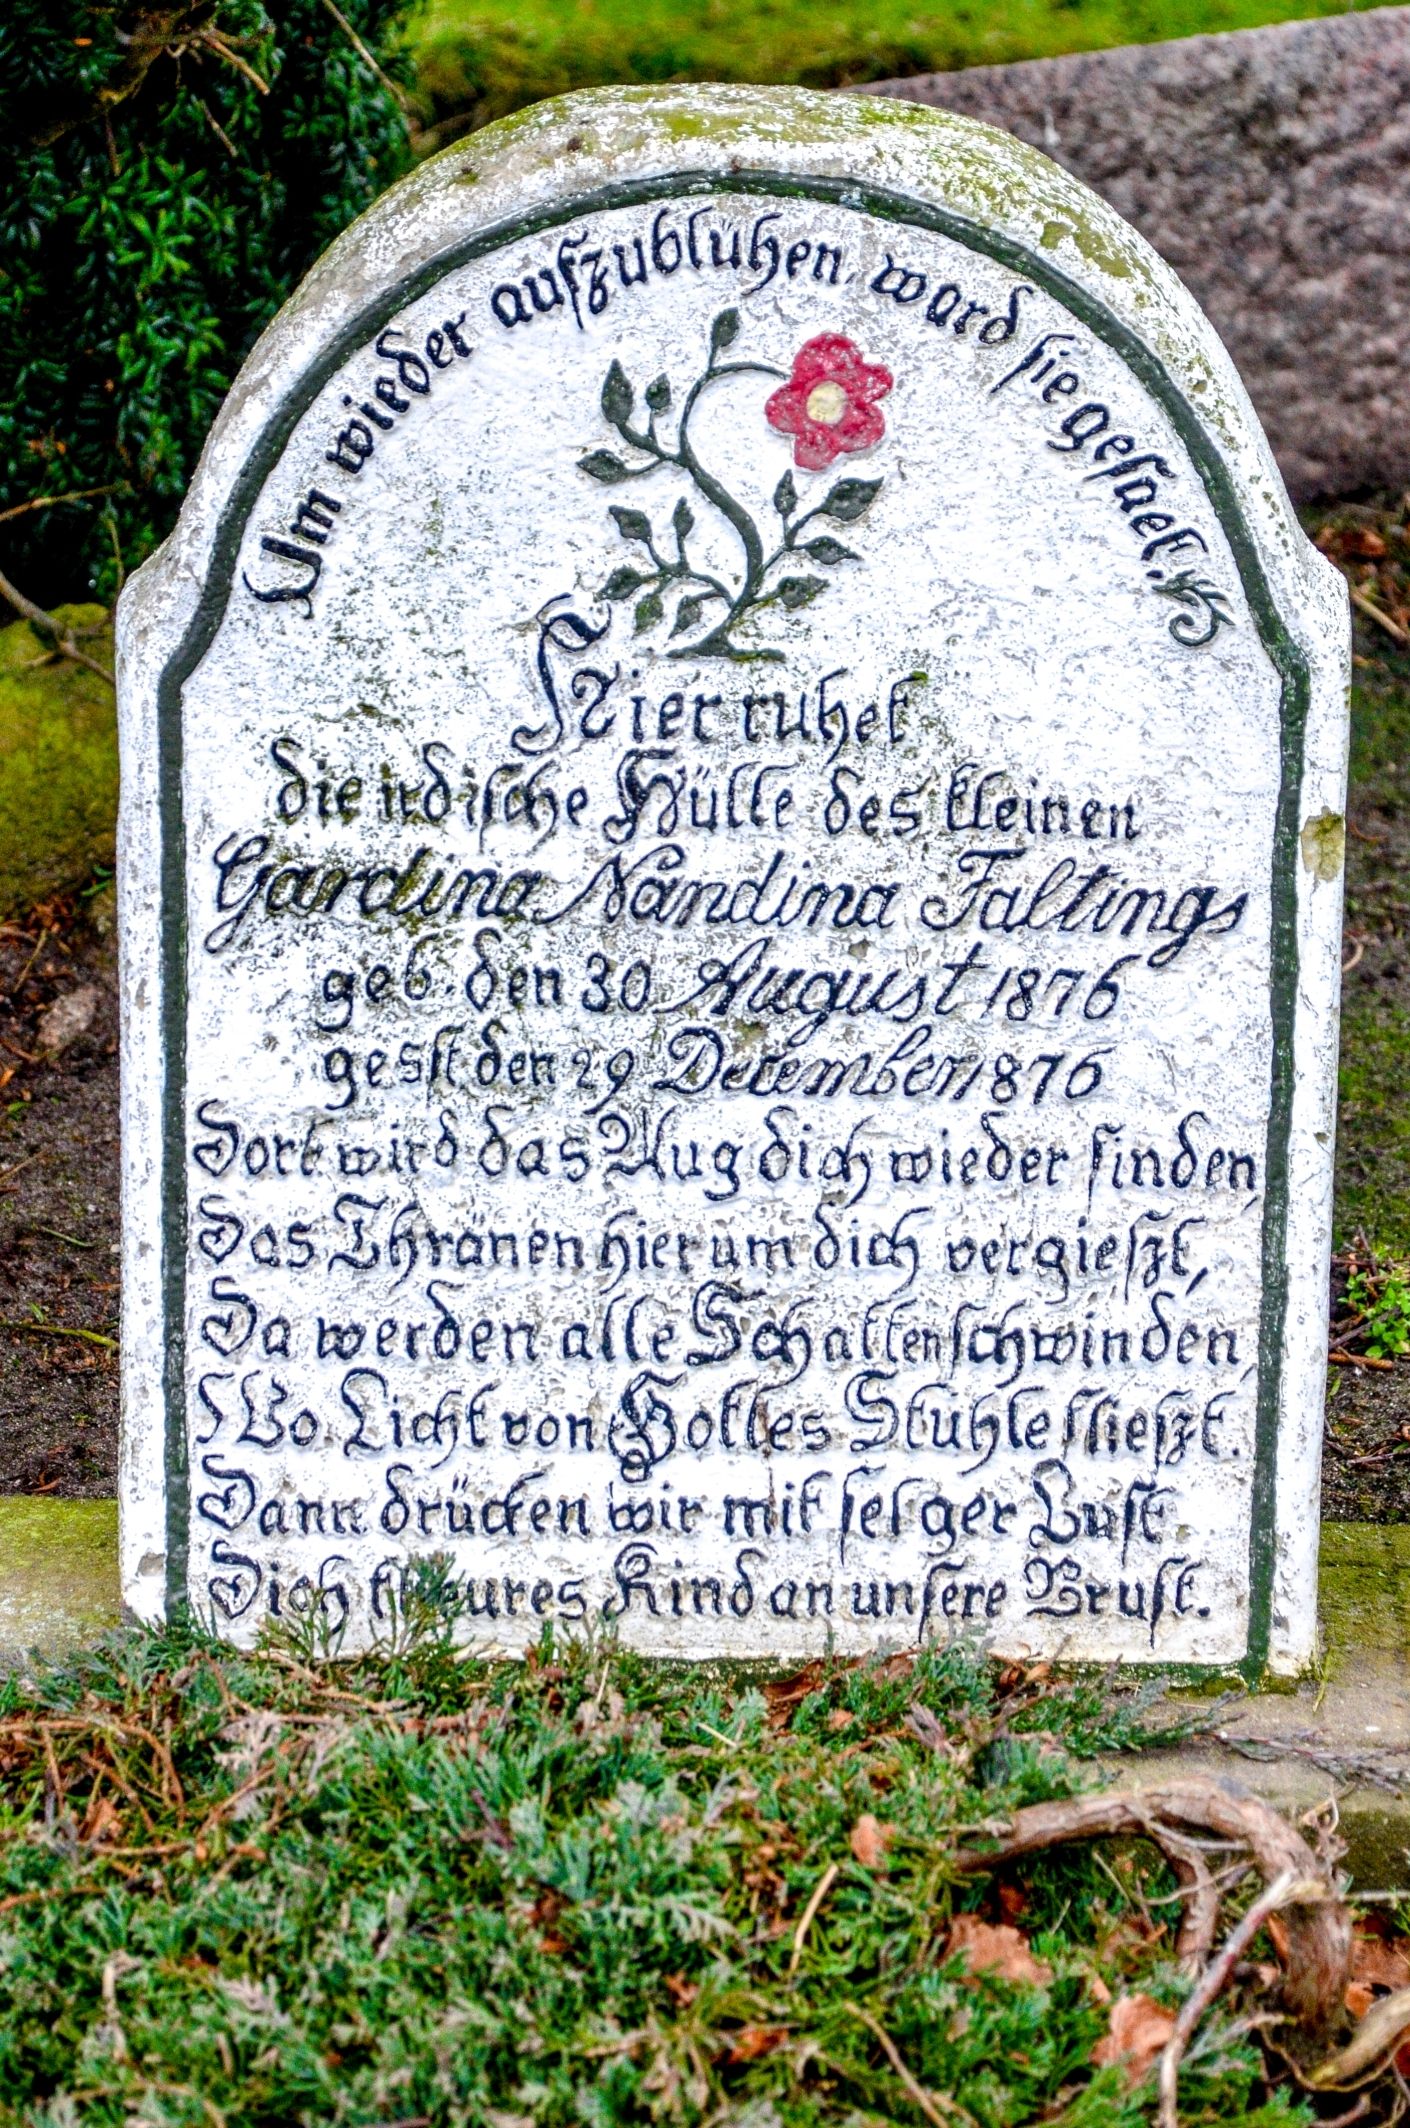 Um wieder aufzublühen, ward sie gesaet.
Hier ruhet
die irdische Hülle des kleinen
Gardina Nandina Faltings
geb. den 30 August 1876
gest den 29 December 1876
Dort wird das Aug dich wieder finden,
Das Thränen hier um dich vergieszt,
Da werden alle Schatten schwinden,
Wo Licht von Gottes Stuhle flieszt.
Dann drücken wir mit sel'ger Lust
Dich theures Kind an unsere Brust.